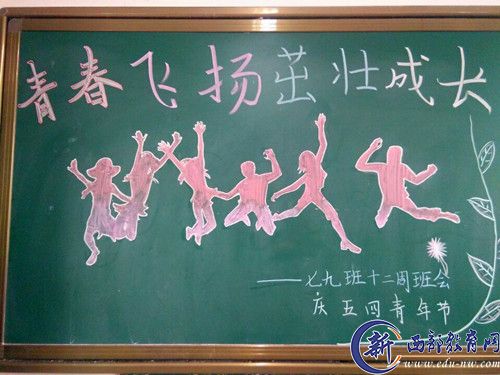 青春飞扬茁壮成长
——七九班十二周班会
庆五四青年节
新 西部教育网
www.edu-nw.com